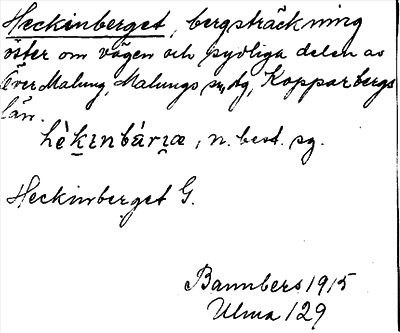 Heckinberget, bergsträckning
öster om vägen och sydliga delen av
Över Malung, Malungs sn, Kopparbergs
län.
hèkɪnbárɪæ, n. best. sg.
Heckinberget G.
Bannbers 1915
Ulma 129